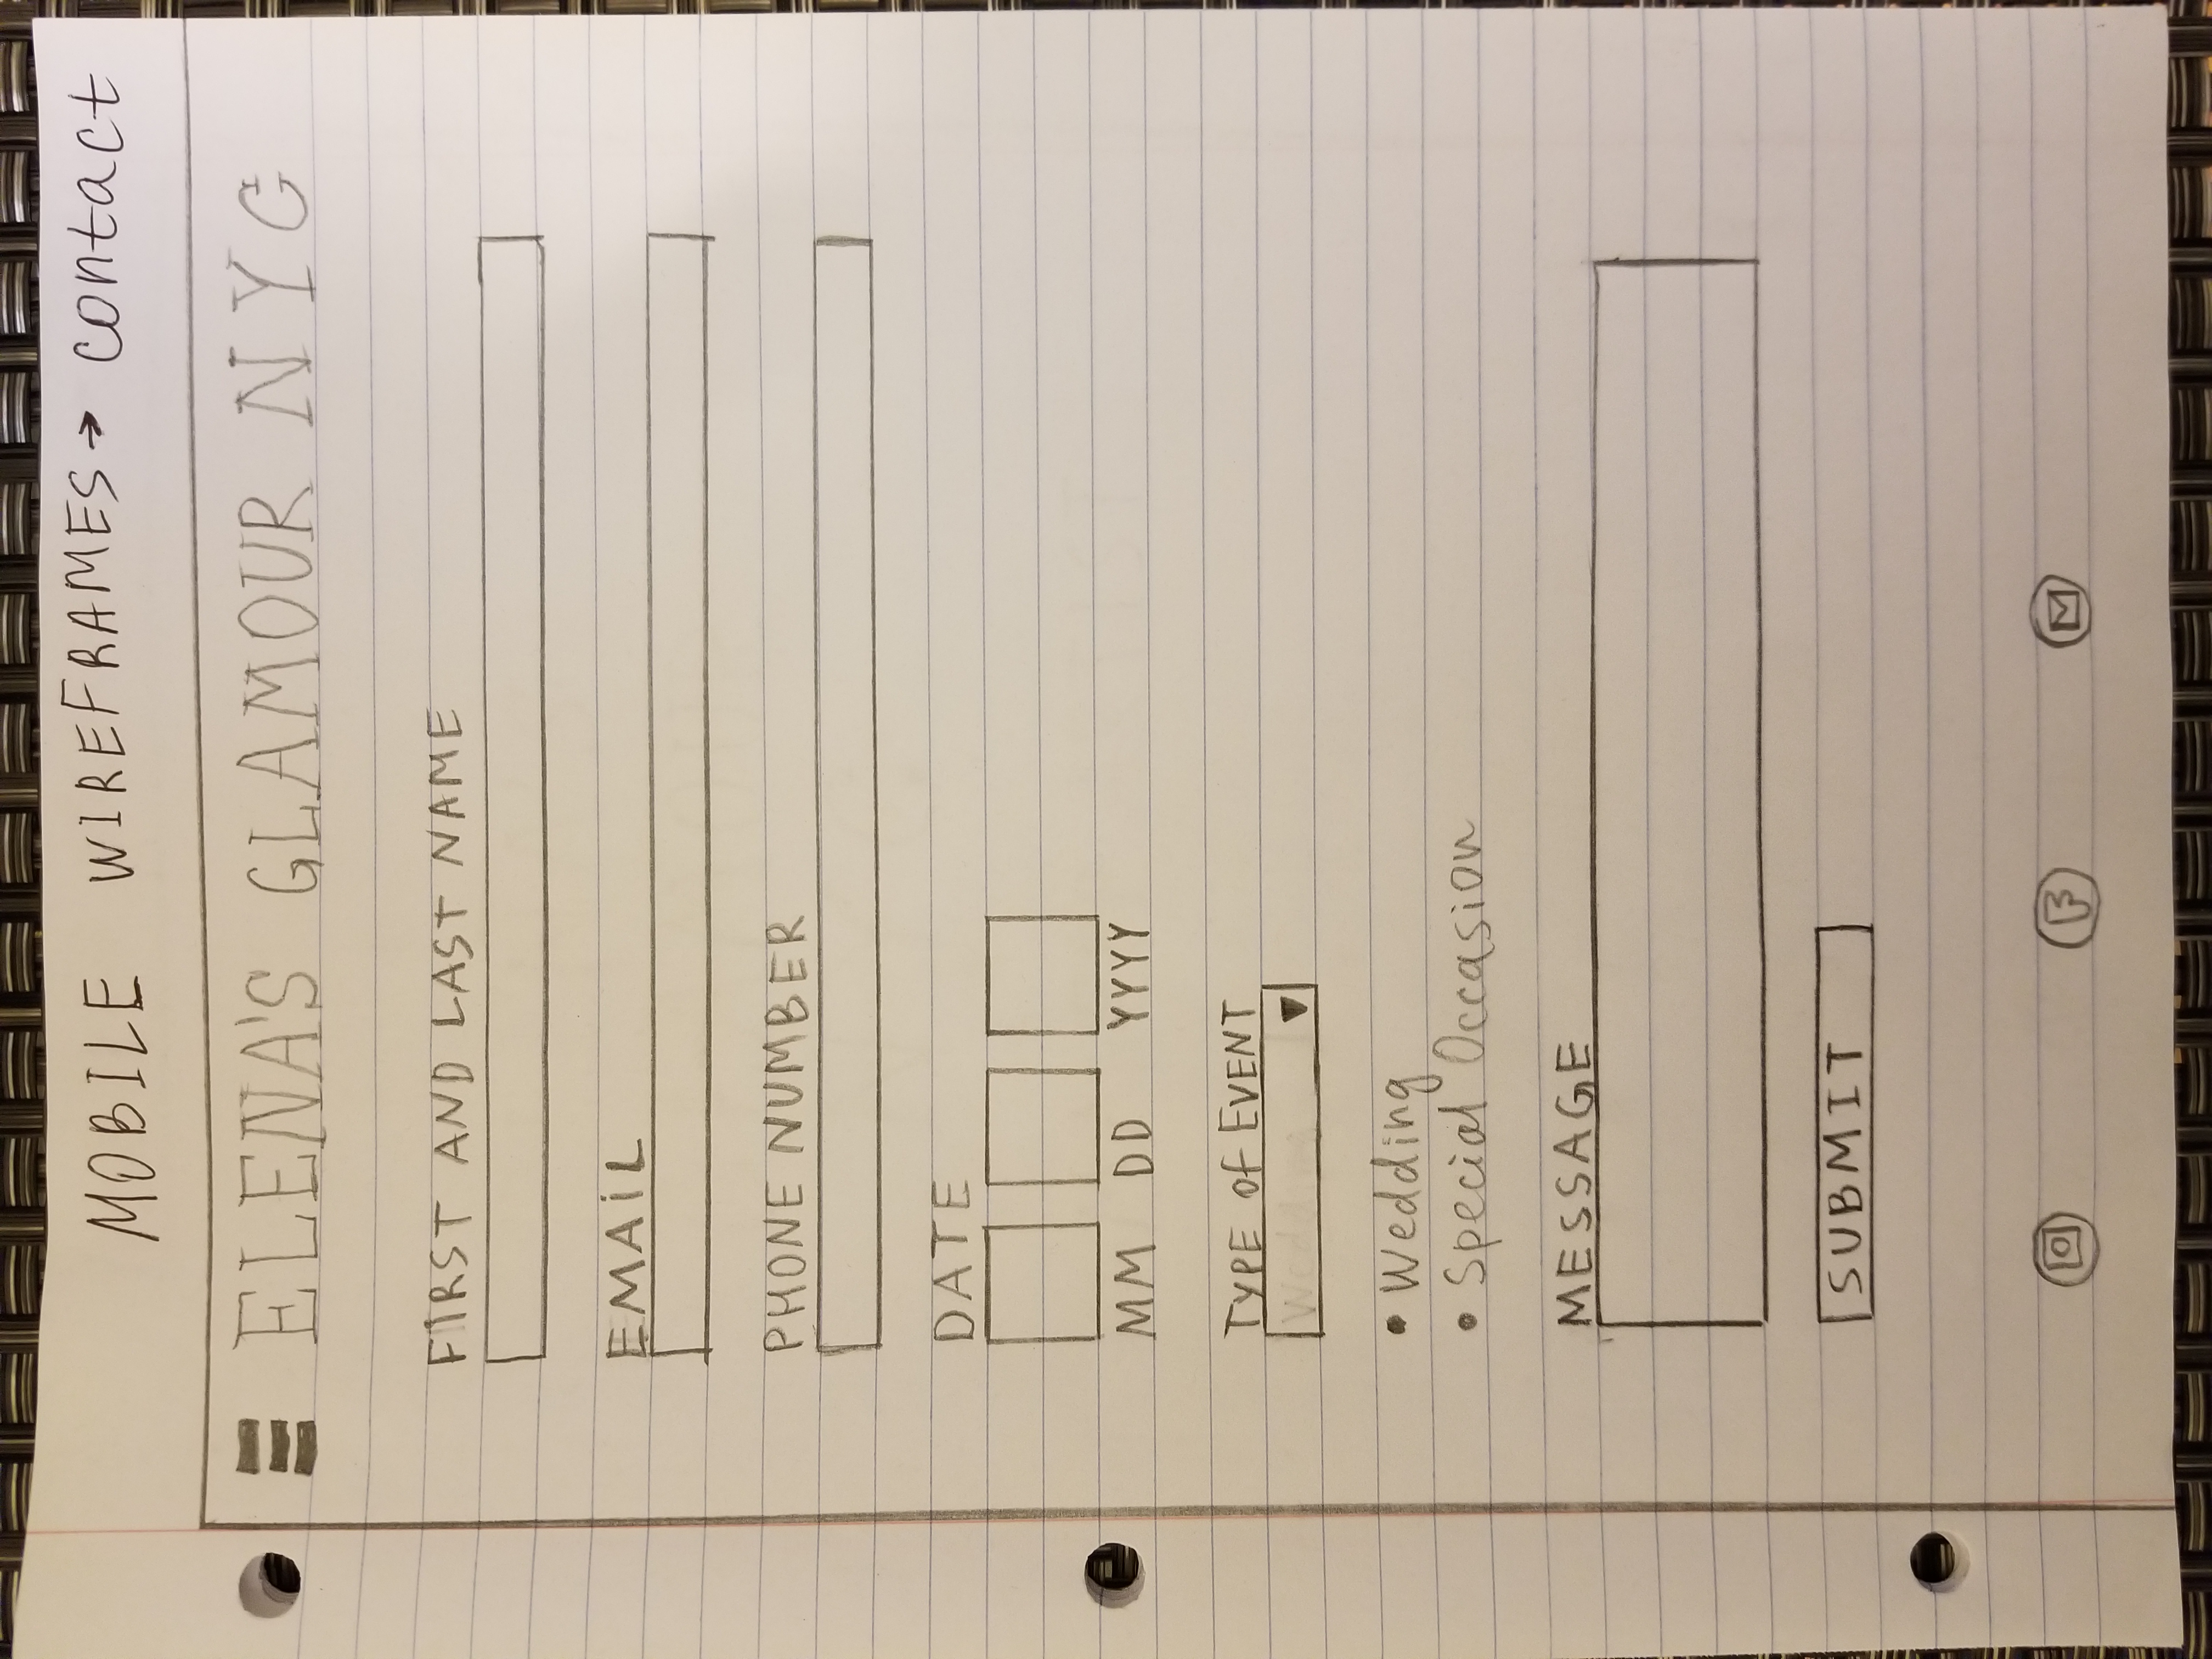 MOBILE WIREFRAMES → contact
ELENA'S GLAMOUR NYC
FIRST AND LAST NAME
EMAiL
PHONE NUMBER
DATE
MM DD YYYY
TYPE Of EVENT
Wedding
• Wedding
• Special Occasion
MESSAGE
SUBMIT
F